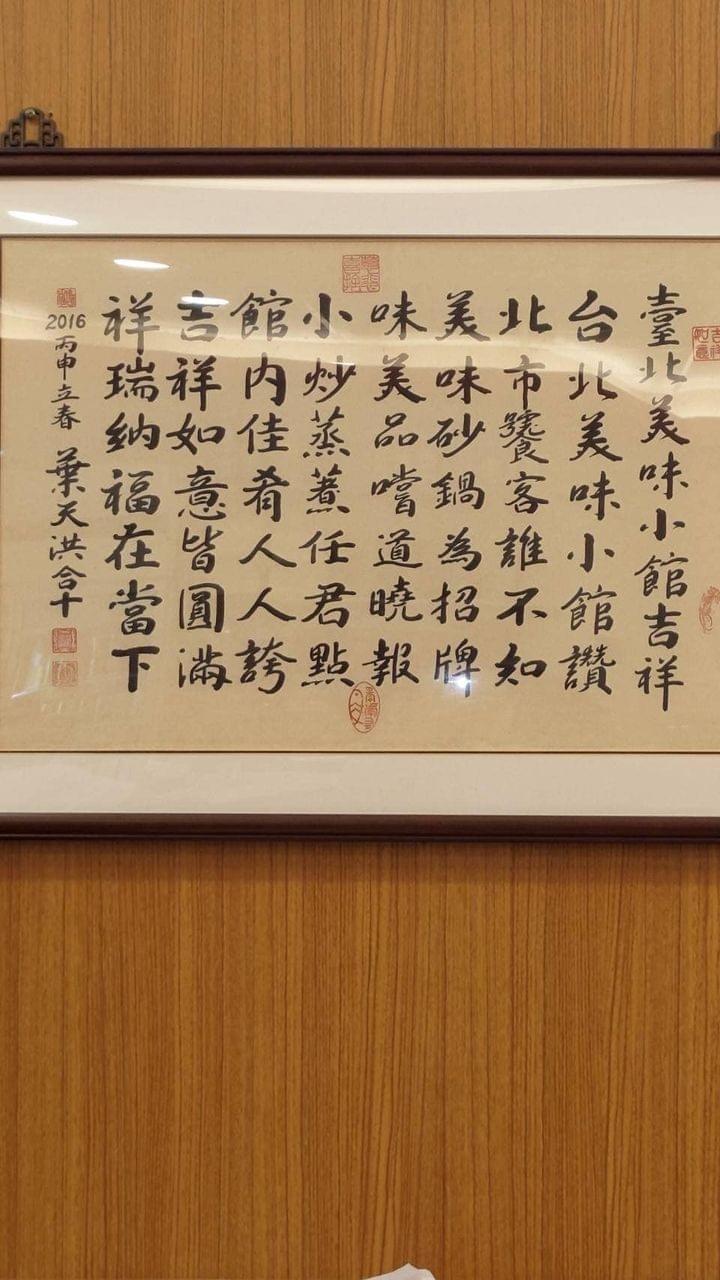 臺北美味小館吉祥
台北美味小館讚
北市饕客誰不知
美味砂鍋為招牌
味美品嚐道曉報
小炒蒸煮任君點
館內佳肴人人誇
吉祥如意皆圓滿
祥瑞納福在當下
2016丙申立春 葉天洪合十